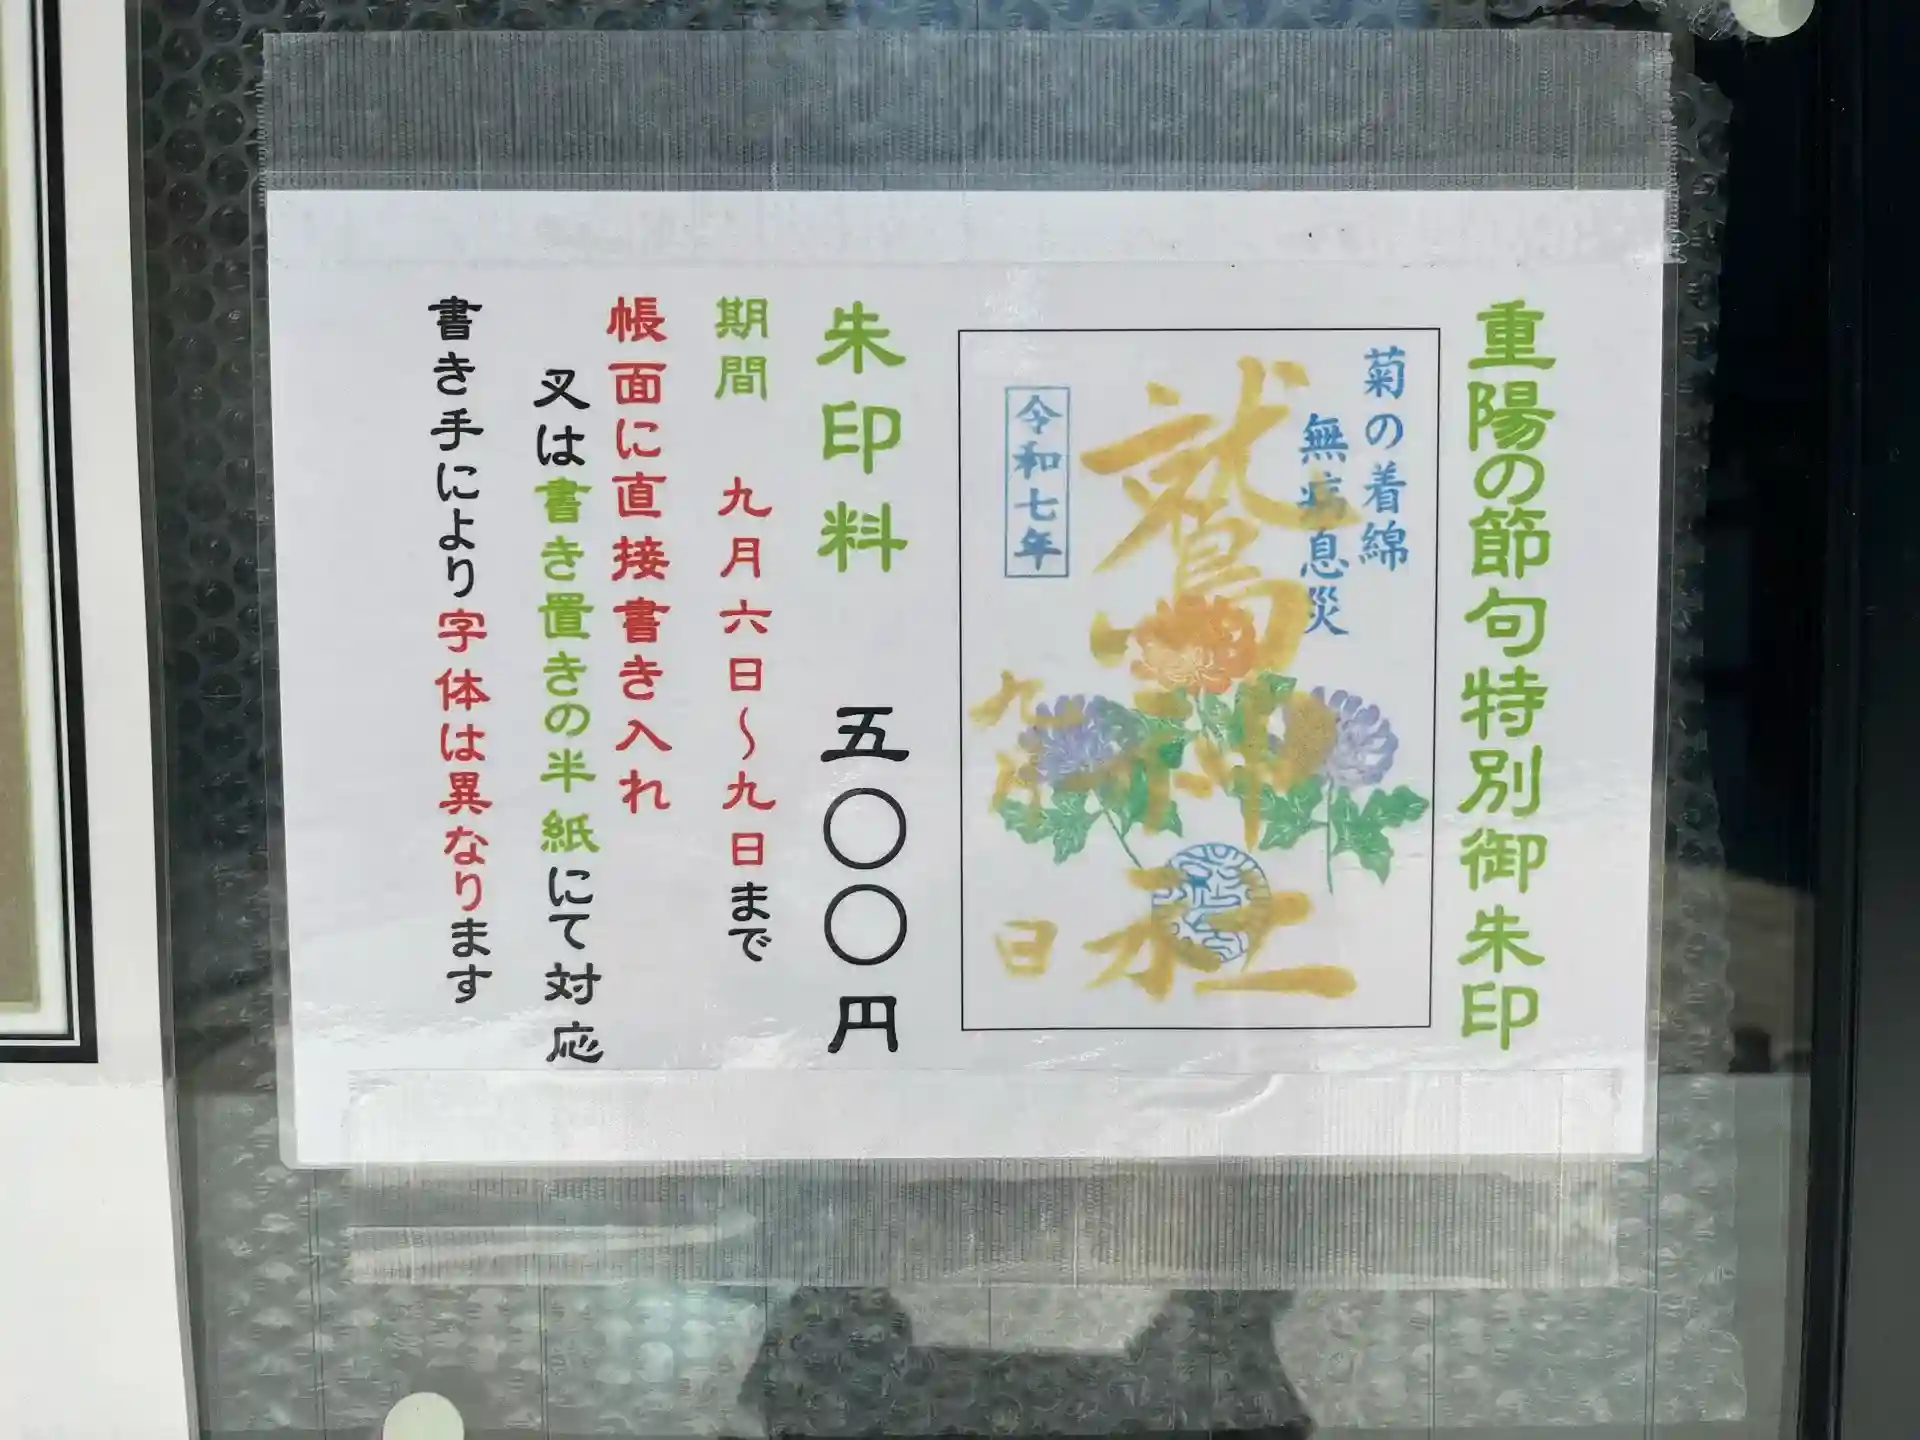 重陽の節句特別御朱印
菊の着綿
無病息災
鷲神社
令和七年
九月 日
朱印料 五〇〇円
期間 九月六日～九日まで
帳面に直接書き入れ
又は書き置きの半紙にて対応
書き手により字体は異なります